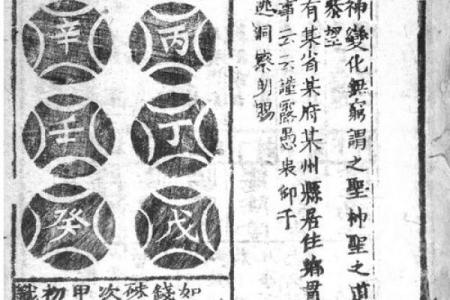 神變化無窮謂之聖神聖之道
有某省某府某州縣居住鄉貫
事云云謹露愚衷仰于
洞察明賜
丙
丁
戊
辛
壬
癸
如錢硃次甲初